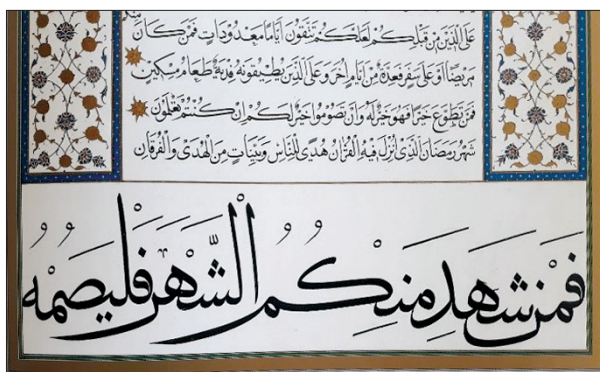 عَلَى الَّذِينَ مِنْ قَبْلِكُمْ لَعَلَّكُمْ تَتَّقُونَ أَيَّامًا مَعْدُودَاتٍ فَمَنْ كَانَ مِنْكُمْ
مَرِيضًا أَوْ عَلَى سَفَرٍ فَعِدَّةٌ مِنْ أَيَّامٍ أُخَرَ وَعَلَى الَّذِينَ يُطِيقُونَهُ فِدْيَةٌ طَعَامُ مِسْكِينٍ
فَمَنْ تَطَوَّعَ خَيْرًا فَهُوَ خَيْرٌ لَهُ وَأَنْ تَصُومُوا خَيْرٌ لَكُمْ إِنْ كُنْتُمْ تَعْلَمُونَ
شَهْرُ رَمَضَانَ الَّذِي أُنْزِلَ فِيهِ الْقُرْآنُ هُدًى لِلنَّاسِ وَبَيِّنَاتٍ مِنَ الْهُدَى وَالْفُرْقَانِ
فَمَنْ شَهِدَ مِنْكُمُ الشَّهْرَ فَلْيَصُمْهُ